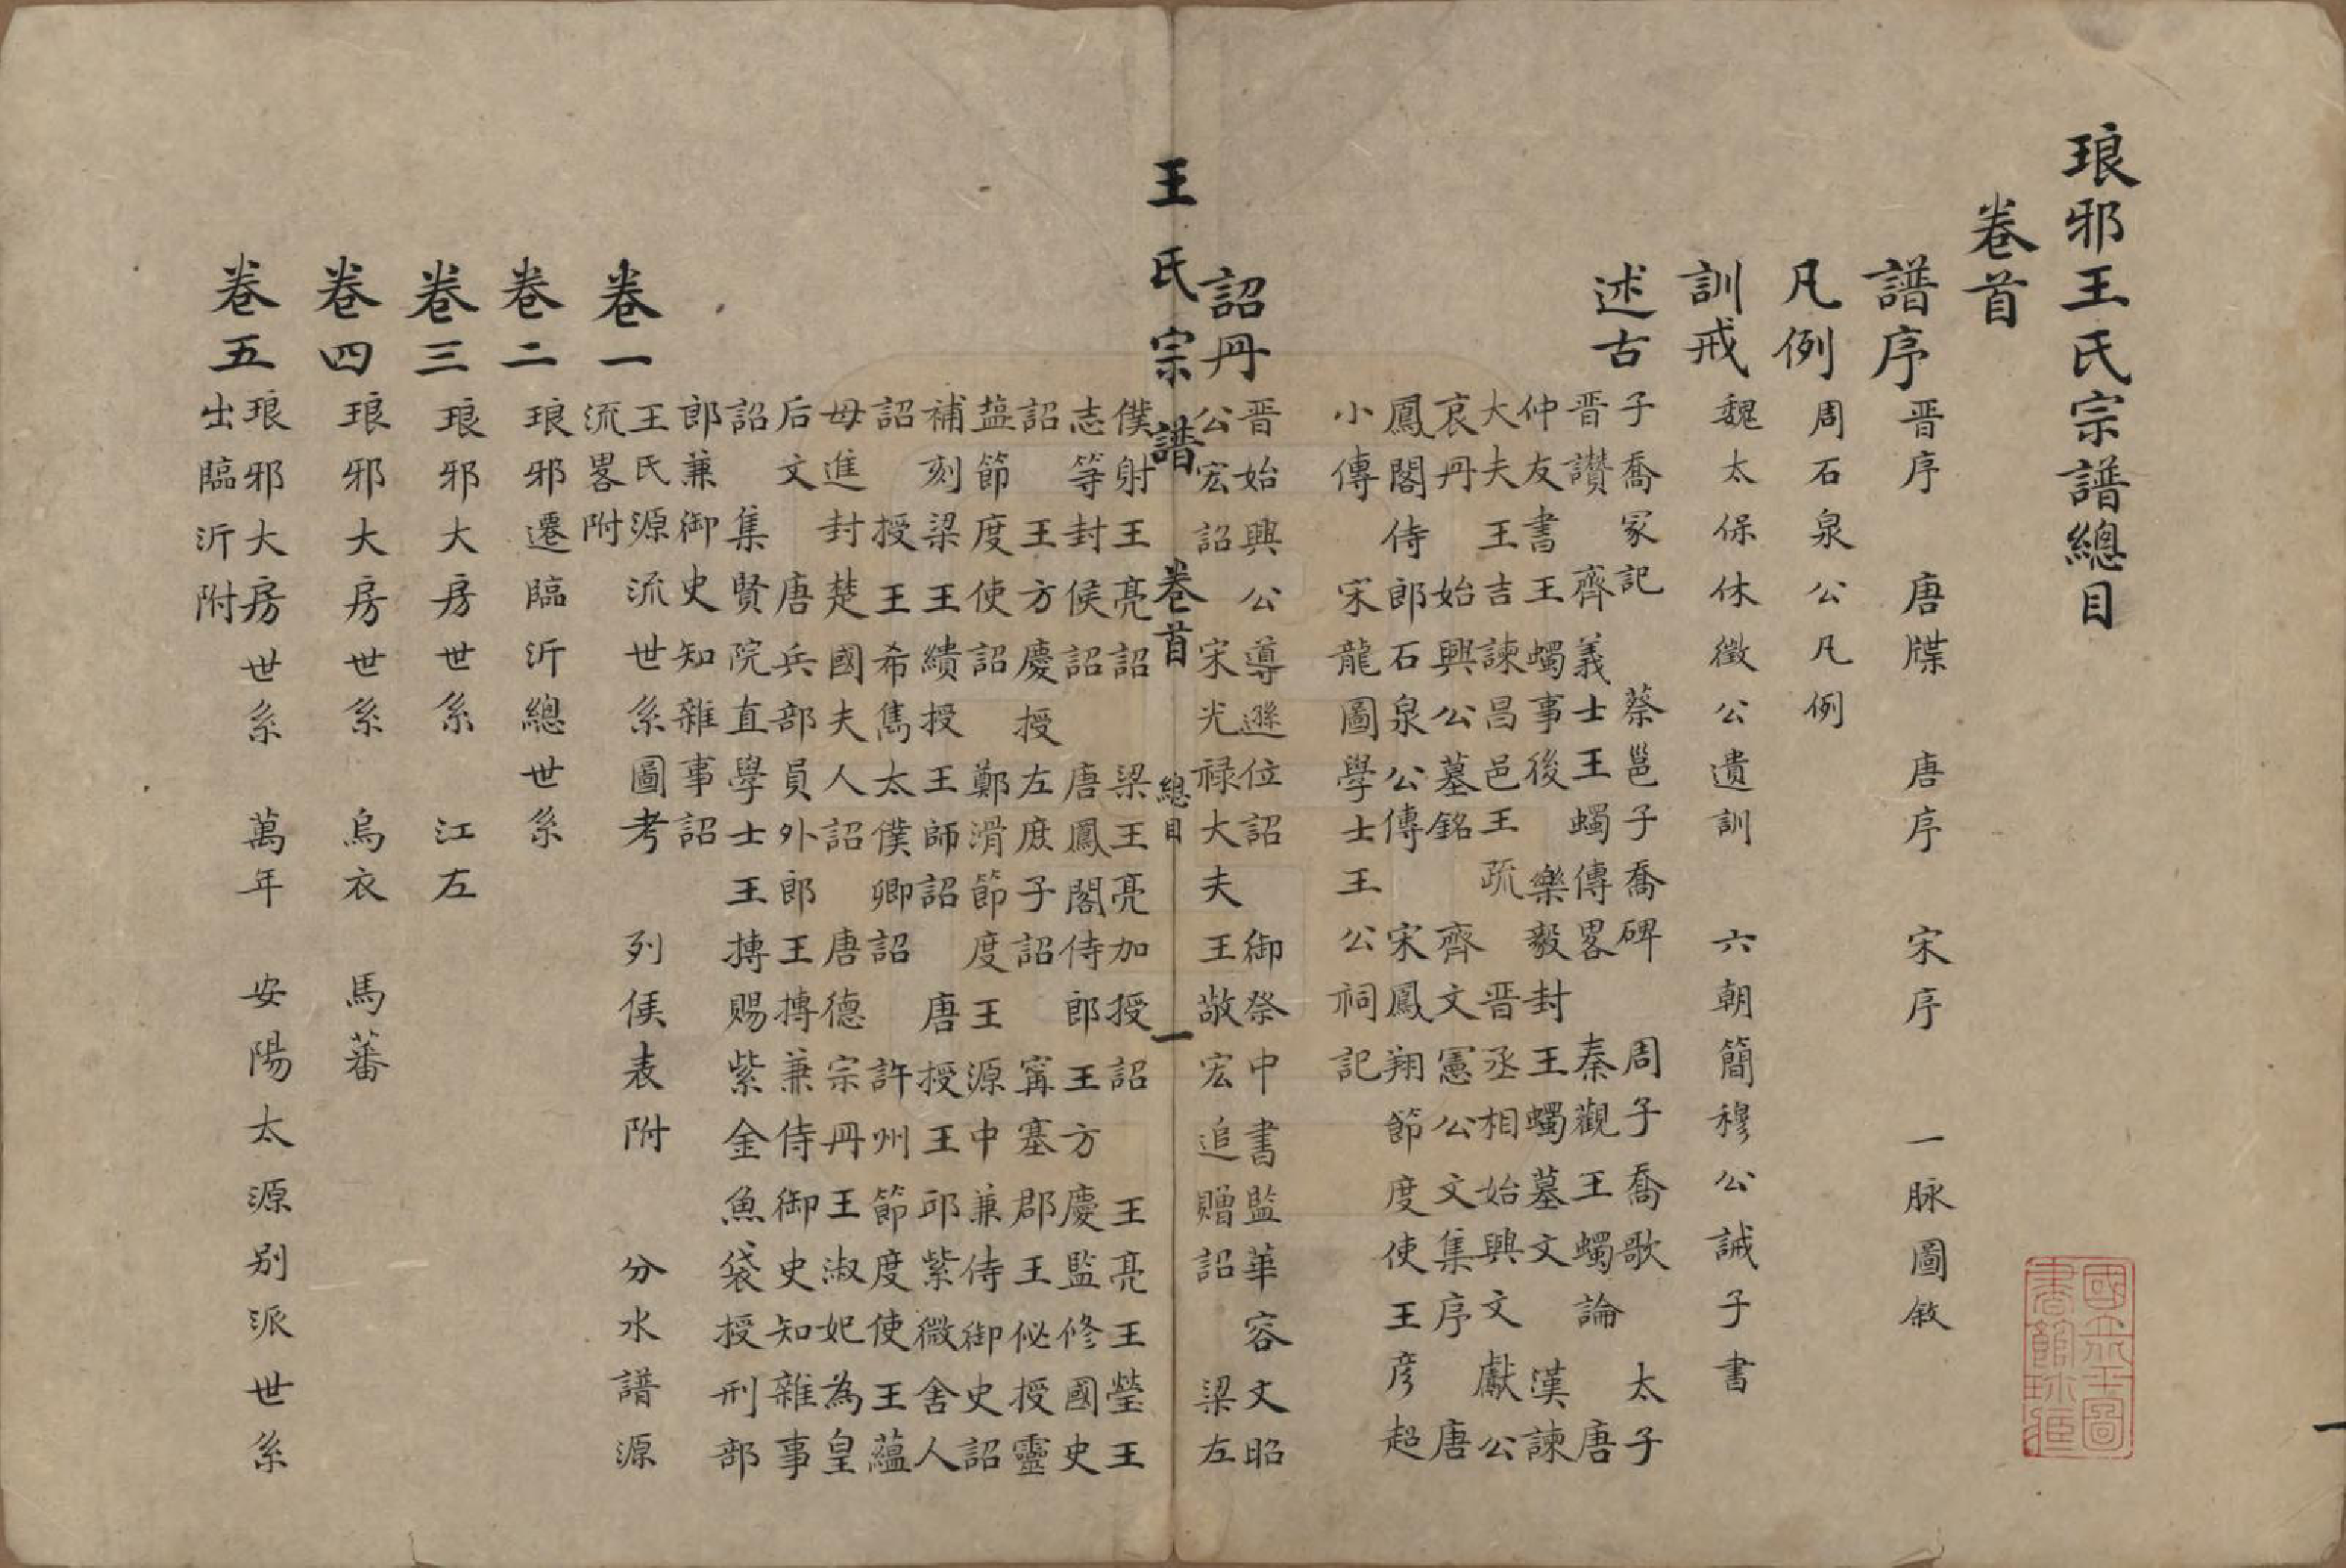 琅邪王氏宗譜總目
卷首
譜序 晋序 唐牒 唐序 宋序 一脉圖敘
凡例 周石泉公凡例
訓戒 魏太保休徵公遺訓 六朝簡穆公誡子書
述古 子喬冢記 蔡邕子喬碑 周子喬歌 太子
晋讚 齊義士王蠋傳畧 秦觀王蠋論 唐
仲友書王蠋事後 樂毅封王蠋墓文 漢諫
大夫王吉諫昌邑王疏 晋丞相始興文獻公
哀丹 始興公墓銘 齊文憲公文集序 唐
鳳閣侍郎石泉公傳 宋鳳翔節度使王彦超
小傳 宋龍圖學士王公祠記
詔丹 晋始興公導遜位詔 御祭中書監華容文昭
公宏詔 宋光禄大夫王敬宏追贈詔 梁左
王氏宗譜 卷首 總目 一
僕射王亮詔 梁王亮加授詔 王亮王瑩王
志等封侯詔 唐鳳閣侍郎王方慶監修國史
詔 王方慶授左庶子詔 寗塞郡王佖授靈
鹽節度使詔 鄭滑節度王源中兼侍御史詔
補刻梁王績授王師詔 唐授王邱紫微舍人
詔 授王希雋太僕卿詔 許州節度使王蘊
母進封楚國夫人詔 唐德宗丹王淑妃為皇
后文 唐兵部員外郎王摶兼侍御史知雜事
詔 集賢院直學士王摶賜紫金魚袋授刑部
郎兼御史知雜事詔
卷一 王氏源流世系圖考 列侯表附 分水譜源
流畧附
卷二 琅邪遷臨沂總世系
卷三 琅邪大房世系 江左
卷四 琅邪大房世系 烏衣 馬蕃
卷五 琅邪大房世系 萬年 安陽太源别派世系
出臨沂附
國立北平圖書館珍藏